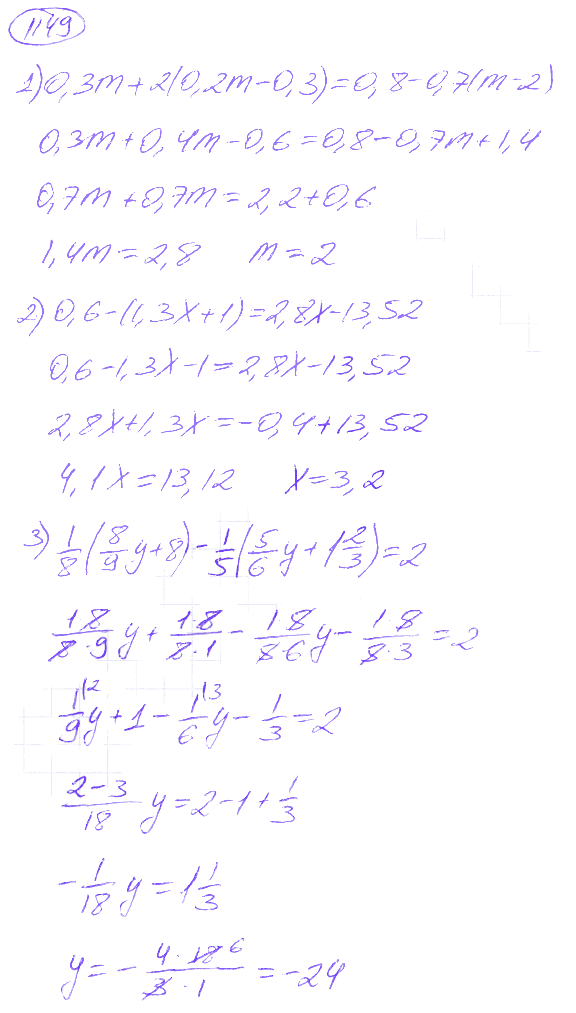 1149
1) 0,3m+2(0,2m-0,3)=0,8-0,7(m-2)
0,3m+0,4m-0,6=0,8-0,7m+1,4
0,7m+0,7m=2,2+0,6
1,4m=2,8 m=2
2) 0,6-(1,3x+1)=2,8x-13,52
0,6-1,3x-1=2,8x-13,52
2,8x+1,3x=-0,4+13,52
4,1x=13,12 x=3,2
3) 1/8(8/9y+8)-1/5(5/6y+1 2/3)=2
1 8/8·9 y+1·8/8·1-1 8/8·6 y-1 8/8·3=2
1|2/9 y+1-1|3/6 y-1/3=2
2-3/18 y=2-1+1/3
-1/18 y=1 1/3
y=-4·18 6/3·1=-24